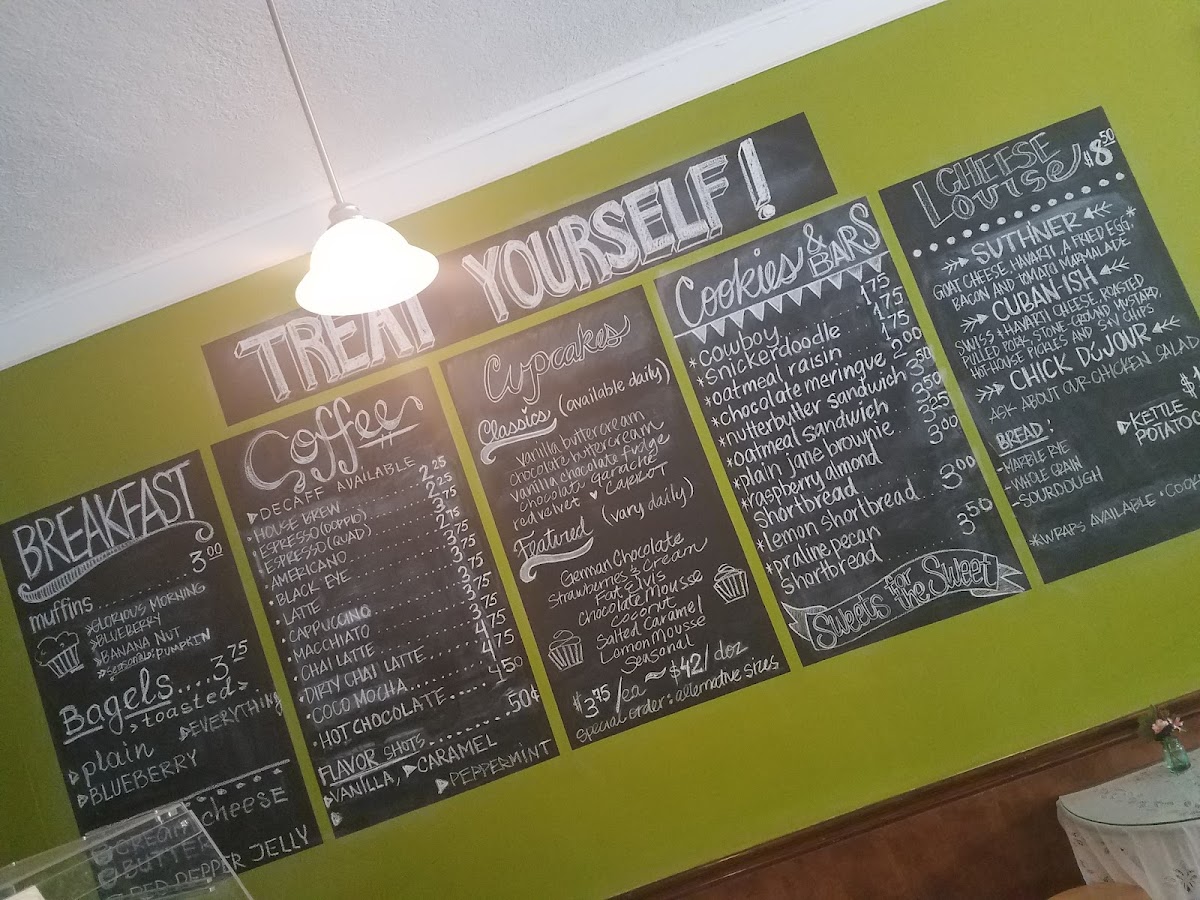 TREAT YOURSELF!
BREAKFAST
muffins 3.00
GLORIOUS MORNING
BLUEBERRY
BANANA NUT
seasonal: PUMPKIN
Bagels....3.75
toasted
plain
EVERYTHING
BLUEBERRY
cheese
CREAM
BUTTER
RED PEPPER JELLY
Coffee
DECAFF AVAILABLE
HOUSE BREW 2.25
ESPRESSO (DOPPIO)
ESPRESSO (QUAD)
AMERICANO
BLACK EYE
LATTE
CAPPUCCINO
MACCHIATO
CHAI LATTE
DIRTY CHAI LATTE
COCO MOCHA 4.75
HOT CHOCOLATE 4.50
FLAVOR SHOTS 50¢
VANILLA, CARAMEL
PEPPERMINT
Cupcakes
Classics (available daily)
vanilla buttercream
chocolate buttercream
vanilla chocolate fudge
chocolate ganache
red velvet ♥ CARROT
Featured (vary daily)
German Chocolate
Strawberries & Cream
Fat Elvis
Chocolate Mousse
Coconut
Salted Caramel
Lemon Mousse
Seasonal
$3.75/ea ~ $42/doz
special order: alternative sizes
Cookies & BARS
*cowboy 1.75
*snickerdoodle 1.75
*oatmeal raisin 1.75
*chocolate meringue 2.00
*nutterbutter sandwich 3.50
*oatmeal sandwich 3.50
*plain jane brownie 3.25
*raspberry almond shortbread 3.00
*lemon shortbread 3.00
*praline pecan shortbread 3.50
Sweets for the Sweet
CHEESE LOUISE $8.50
SUTHNER
GOAT CHEESE, HAVARTI, A FRIED EGG,*
BACON AND TOMATO MARMALADE
CUBAN-ISH
SWISS + HAVARTI CHEESE, ROASTED
PULLED PORK, STONE GROUND MUSTARD,
HOT HOUSE PICKLES AND S+V CHIPS
CHICK DUJOUR
ASK ABOUT OUR CHICKEN SALAD
BREAD:
-MARBLE RYE
-WHOLE GRAIN
-SOURDOUGH
KETTLE
POTATO
*WRAPS AVAILABLE